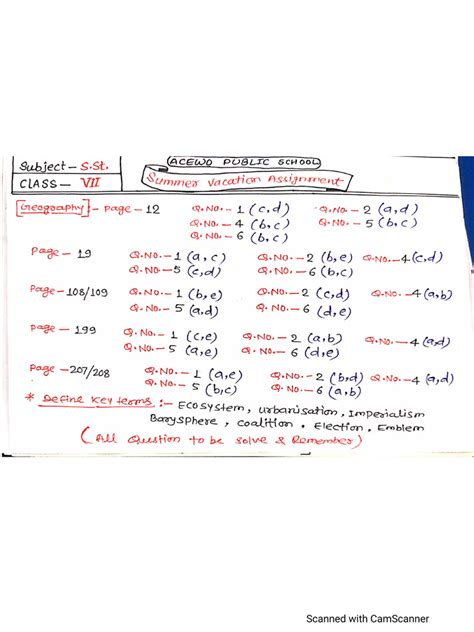 Subject - S.St.
CLASS - VII
ACEWO PUBLIC SCHOOL
Summer Vacation Assignment
[Geography] - Page - 12 Q.NO. - 1 (c,d) Q.NO. - 2 (a,d)
Q.NO. - 4 (b,c) Q.NO. - 5 (b,c)
Q.NO. - 6 (b,c)
Page - 19 Q.NO. - 1 (a,c) Q.NO. - 2 (b,e) Q.NO. - 4 (c,d)
Q.NO. - 5 (c,d) Q.NO. - 6 (b,c)
Page - 108/109 Q.NO. - 1 (b,e) Q.NO. - 2 (c,d) Q.NO. - 4 (a,b)
Q.NO. - 5 (a,d) Q.NO. - 6 (d,e)
Page - 199 Q.NO. - 1 (c,e) Q.NO. - 2 (a,b) Q.NO. - 4 (a,d)
Q.NO. - 5 (a,e) Q.NO. - 6 (d,e)
Page - 207/208 Q.NO. - 1 (a,e) Q.NO. - 2 (b,d) Q.NO. - 4 (a,d)
Q.NO. - 5 (b,c) Q.NO. - 6 (a,b)
* Define Key terms :- Ecosystem, urbanisation, Imperialism
Barysphere, coalition, Election, Emblem
(All Question to be solve & Remember)
Scanned with CamScanner